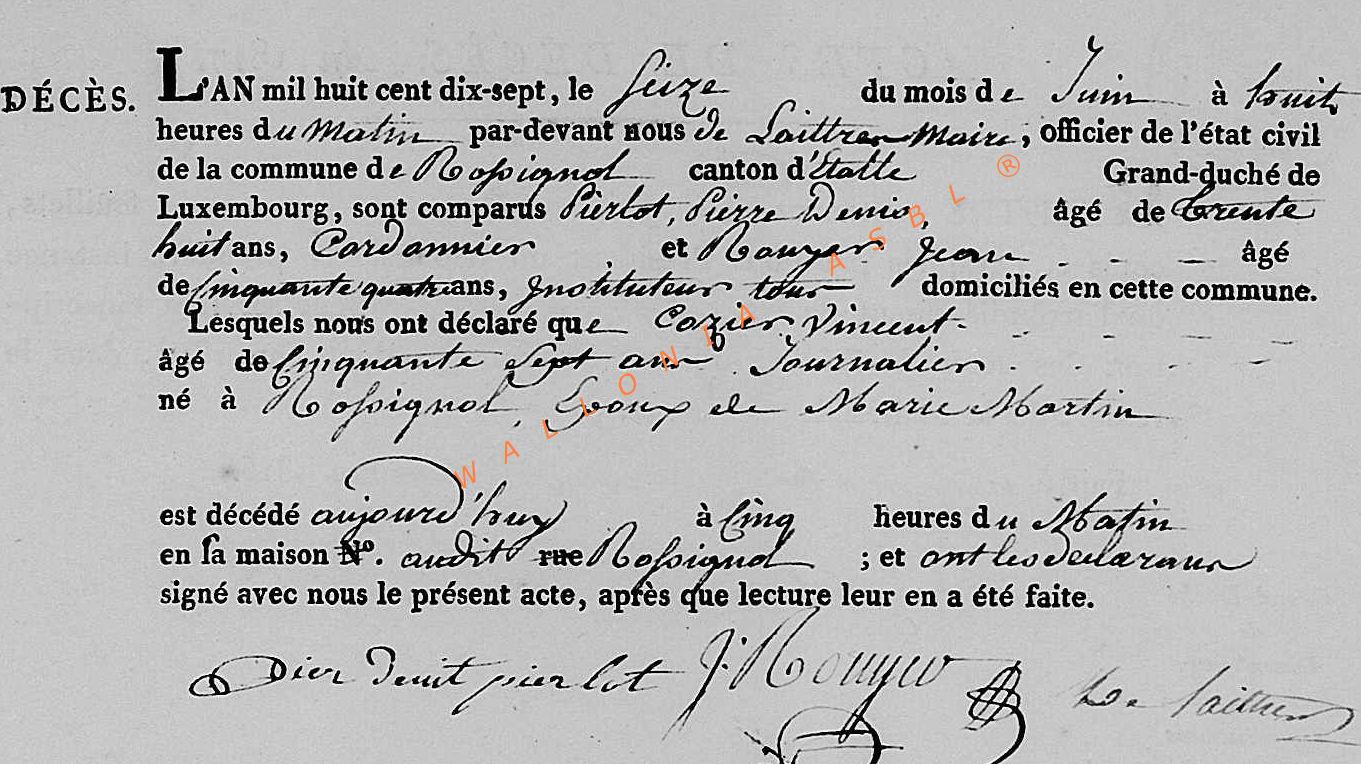 DÉCÈS. L'AN mil huit cent dix-sept, le Seize du mois de Juin à huit
heures du Matin par-devant nous de Laittres Maire, officier de l'état civil
de la commune de Rossignol canton d'Etalle Grand-duché de
Luxembourg, sont comparus Pierlot, Pierre Denis, âgé de trente
huit ans, Cordonnier et Rouyer Jean âgé
de Cinquante quatre ans, Instituteur tous domiciliés en cette commune.
Lesquels nous ont déclaré que Cozier, Vincent
âgé de Cinquante Sept ans Journalier
né à Rossignol, Epoux de Marie Martin
est décédé aujourd'huy à Cinq heures du Matin
en sa maison N°. audit rue Rossignol ; et ont les declarans
signé avec nous le présent acte, après que lecture leur en a été faite.
pierlot J. Rouyer De Laittres
WALLONIA ASBL ®